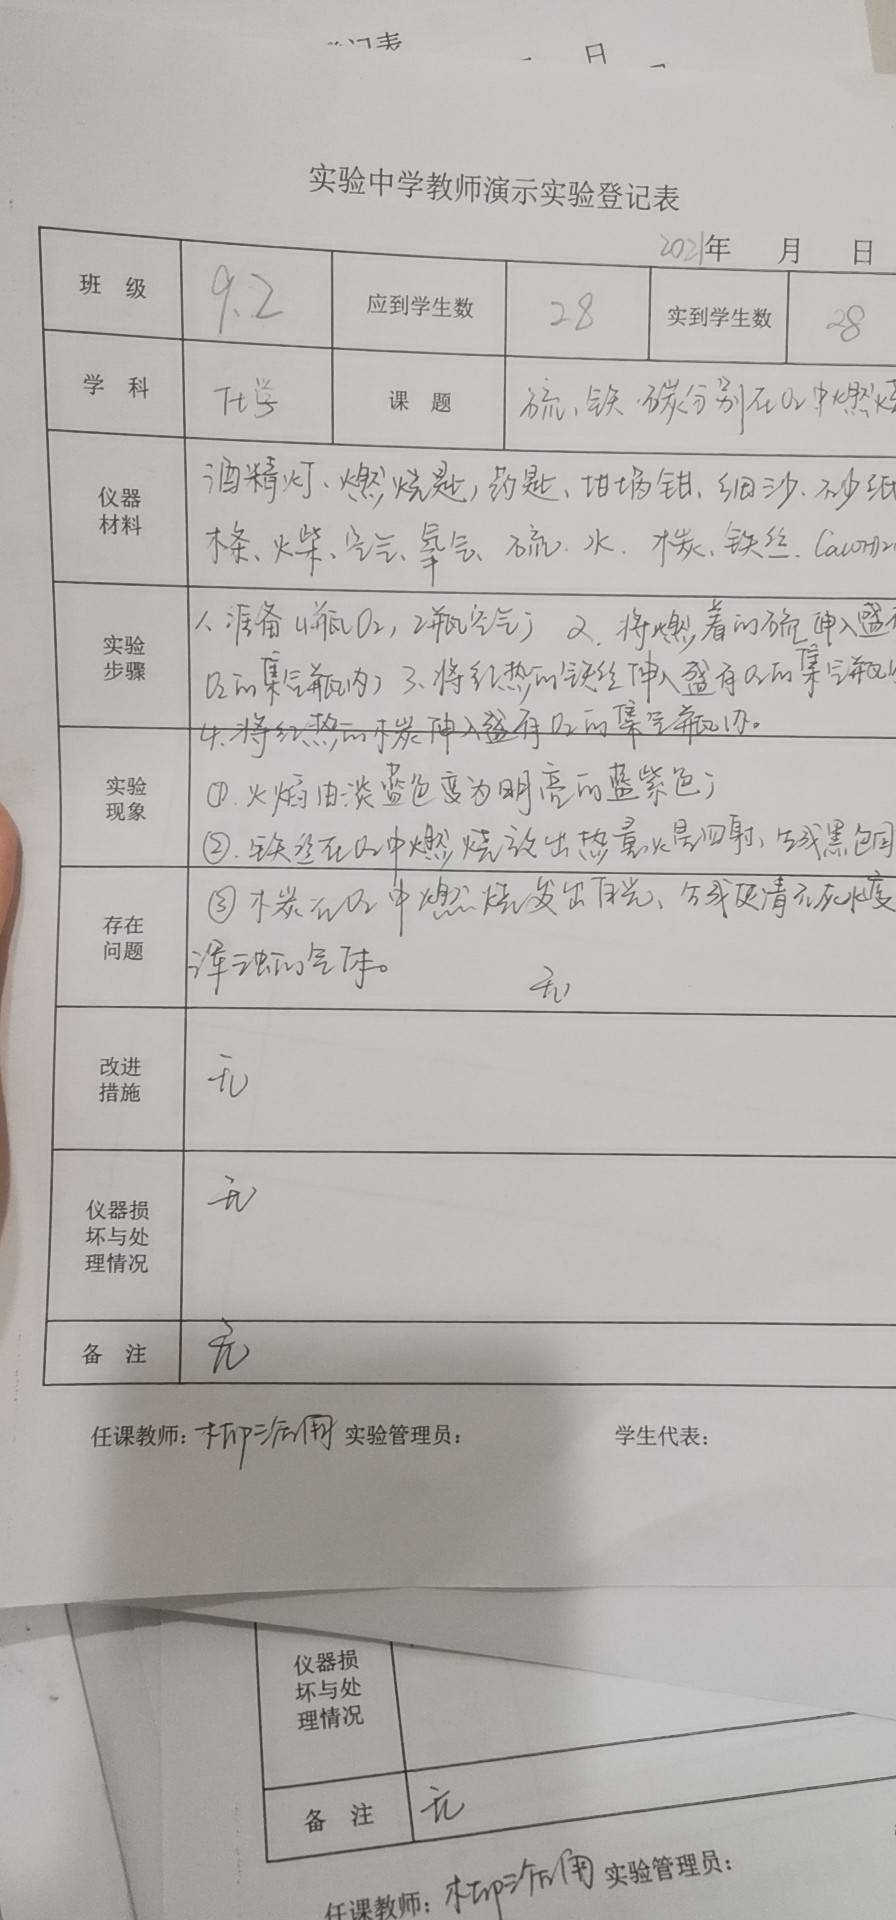 记表
日
实验中学教师演示实验登记表
2021年 月 日
班 级 9.2 应到学生数 28 实到学生数 28
学 科 化学 课 题 硫、铁、碳分别在O2中燃烧
仪器
材料
酒精灯、燃烧匙,药匙、坩埚钳、细沙、砂纸
木条、火柴、空气、氧气、硫、水、木炭、铁丝、Ca(OH)2
实验
步骤
1、准备4瓶O2,2瓶空气; 2、将燃着的硫伸入盛有
O2的集气瓶内; 3、将红热的铁丝伸入盛有O2的集气瓶内
4、将红热的木炭伸入盛有O2的集气瓶内。
实验
现象
①、火焰由淡蓝色变为明亮的蓝紫色;
②、铁丝在O2中燃烧放出热量火星四射、生成黑色固
存在
问题
③木炭在O2中燃烧发出白光、生成使清石灰水变
浑浊的气体。
无
改进
措施
无
仪器损
坏与处
理情况
无
备 注 无
任课教师: 实验管理员: 学生代表:
仪器损
坏与处
理情况
备 注 无
任课教师: 实验管理员: